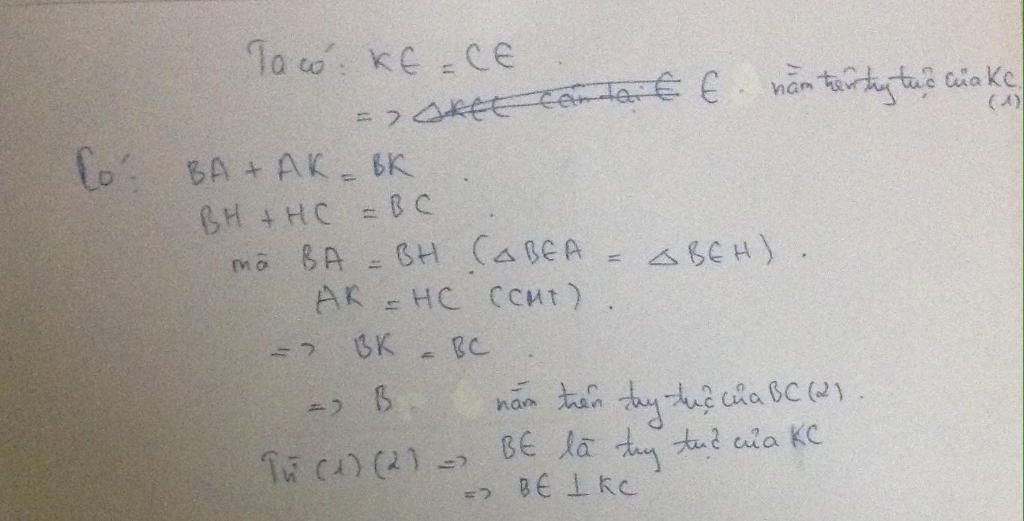 Ta có: KE = CE
=> △KEC cân tại E E nằm trên tùy tực của KC (1)
Có: BA + AK = BK
BH + HC = BC
mà BA = BH (△BEA = △BEH).
AK = HC (CMT).
=> BK = BC
=> B nằm trên tùy tực của BC (2).
Từ (1) (2) => BE là tùy tực của KC
=> BE ⊥ KC